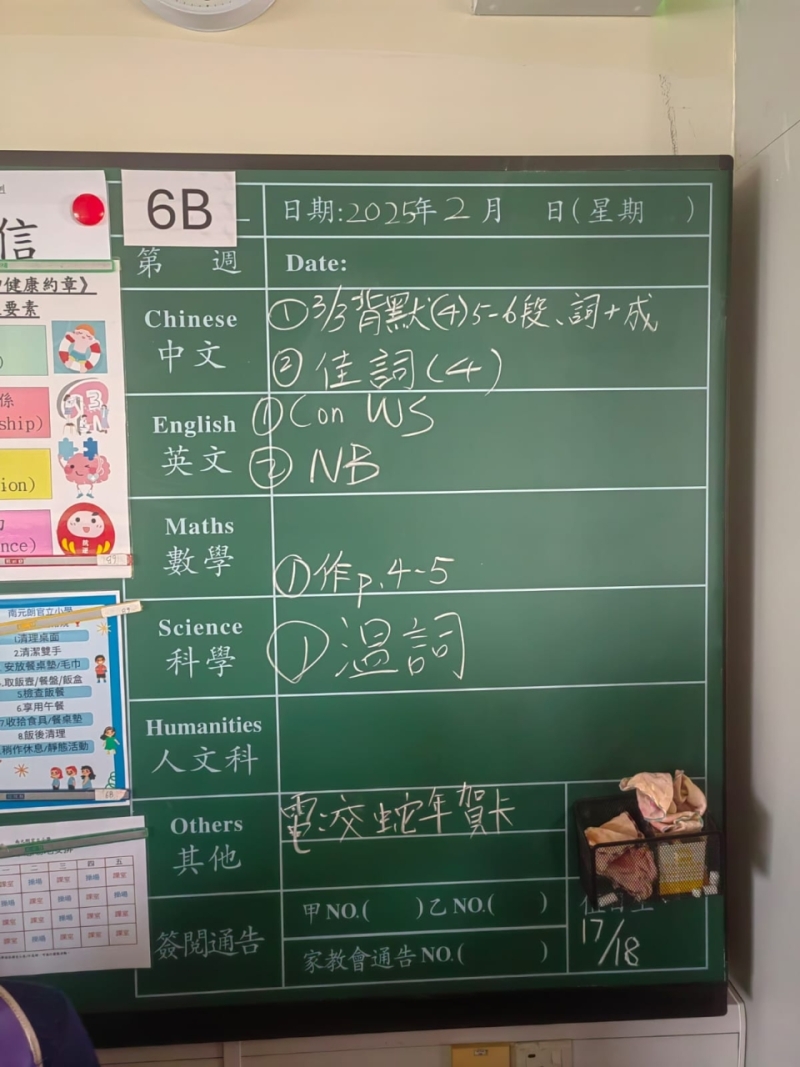 信
6B
日期:2025年2月 日(星期 )
第 週
Date:
健康約章》
要素
Chinese
中文
①3/3背默(4)5-6段、詞+成
②佳詞(4)
係
ship)
English
英文
①Con WS
②NB
ion)
Maths
數學
①作p.4-5
nce)
Science
科學
①溫詞
南元朗官立小學
1.清理桌面
2.清潔雙手
安放餐桌墊/毛巾
取飯壺/餐盤/飯盒
5.檢查飯餐
6.享用午餐
7.收拾食具/餐桌墊
8.飯後清理
稍作休息/靜態活動
Humanities
人文科
Others
其他
電:交蛇年賀卡
一 二 三 四 五
簽閱通告
甲NO.( )乙NO.( )
家教會通告NO.( )
17/18